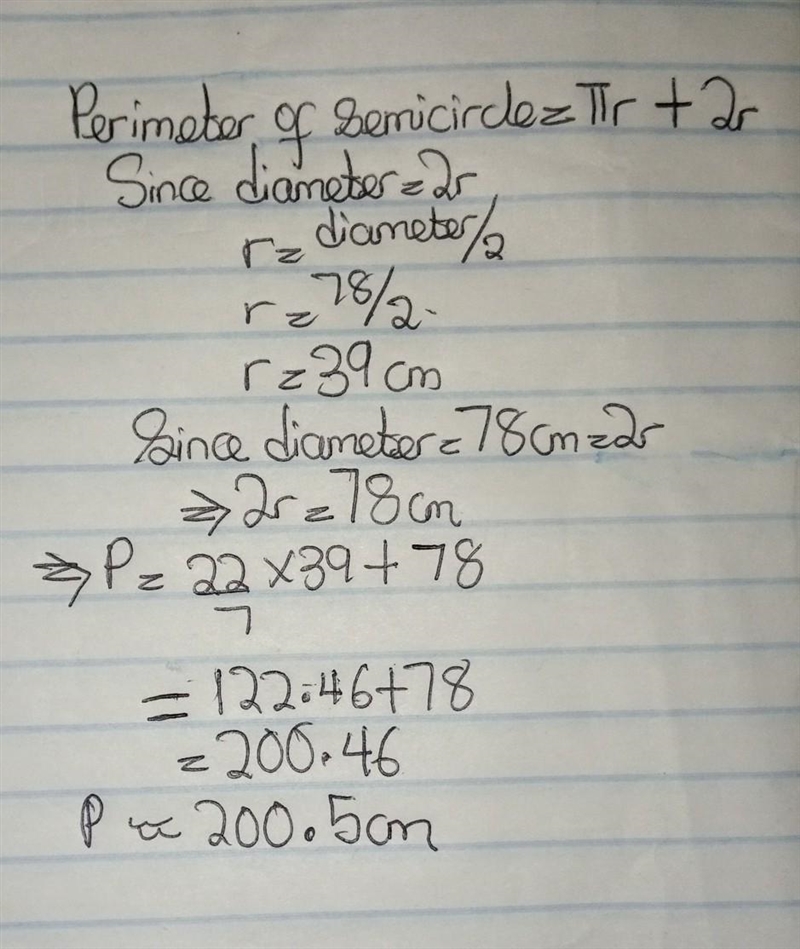 Perimeter of semicircle = πr + 2r
Since diameter = 2r
r = diameter/2
r = 78/2
r = 39 cm
Since diameter = 78cm = 2r
⇒ 2r = 78cm
⇒ P = 22/7 × 39 + 78
= 122.46 + 78
= 200.46
P ≈ 200.5cm